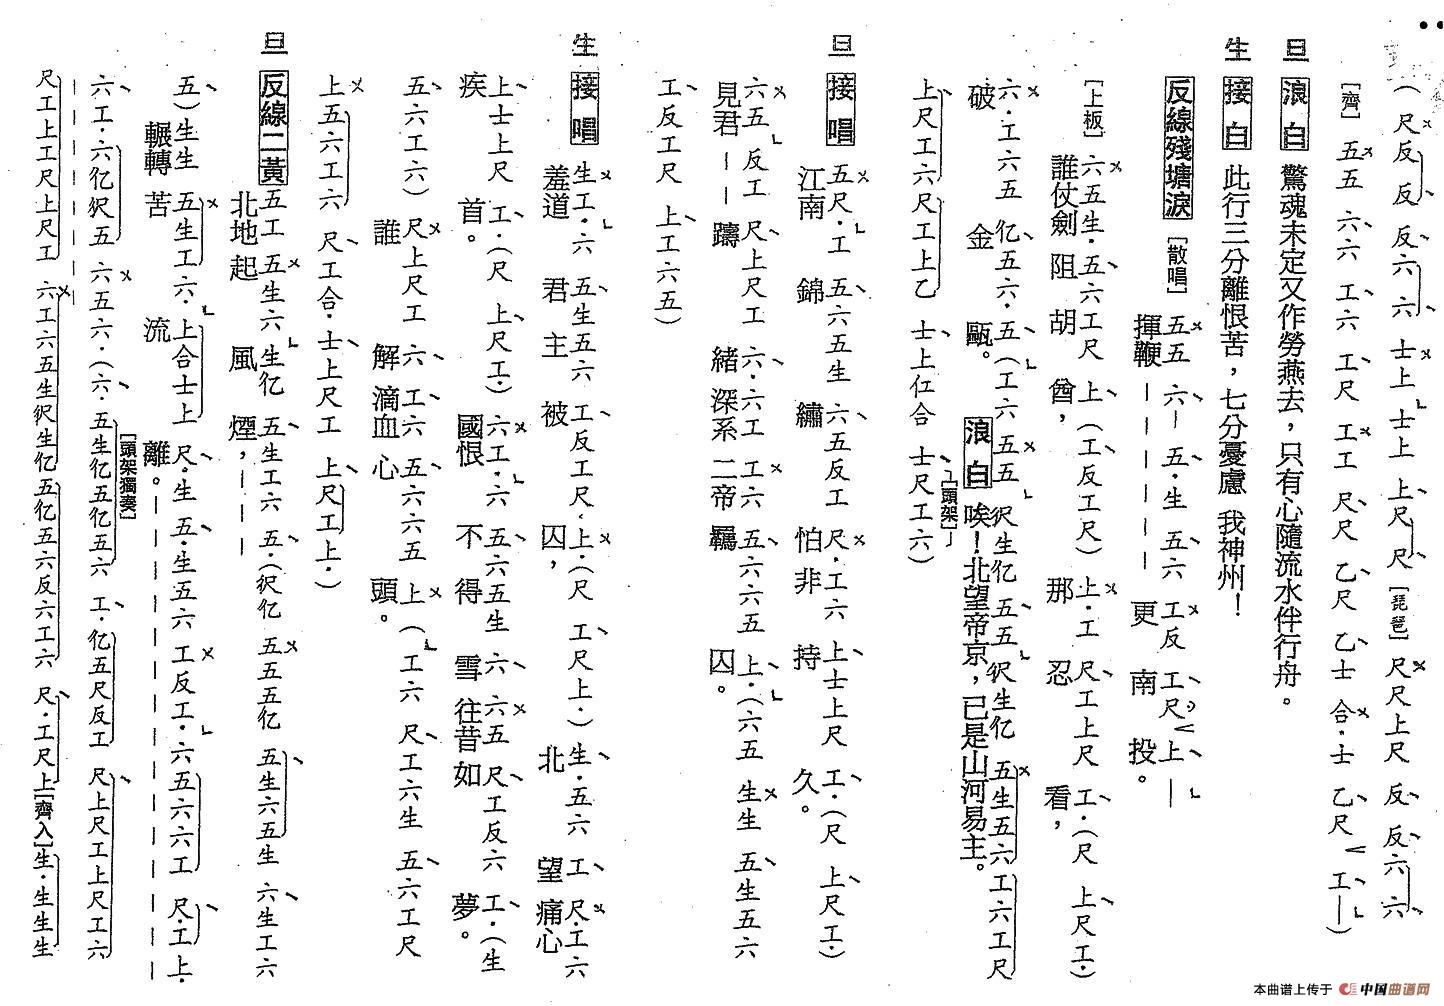 （尺反 反 反六 六 士上 士上 上尺 尺［琵琶］尺尺上尺 反 反六 六
［齊］五五 六六 工六 工尺 工工 尺尺 乙尺 乙士 合·士 乙尺 工—）
旦 浪白 驚魂未定又作勞燕去，只有心隨流水伴行舟。
生 接白 此行三分離恨苦，七分憂慮 我神州！
反線殘塘淚［散唱］五五 六— 五·生 五六 工反 工尺 上—
揮鞭————————更 南 投。
［上板］六五生·五六工尺 上（工反工尺）上·工 尺工上尺 工·（尺 上尺工·）
誰仗劍 阻 胡 酋， 那 忍 看，
六·工六五 仩五六·五（工六 五五 伬生仩 五五 伬生仩 五生五六工六工尺
破 金 甌。 浪白 唉！北望帝京，已是山河易主。
上尺工六尺工上乙 士上仜合 士尺工六）
［頭架］
旦 接唱 五尺·工 五六五生 六五反工 尺·工六 上士上尺 工·（尺 上尺工·）
江南 錦 繡 怕非 持 久。
六五反工 尺上尺工 六·六工 工六 五六六五 上·（六五 生生 五生五六
見君——躊 緒 深系 二帝 羈 囚。
工反工尺 上工六五）
生 接唱 生工·六 五生五六 工反工尺·上·（尺 工尺上·）生·五六 工 尺·工六
羞道 君 主 被 囚， 北 望 痛心
上士上尺 工·（尺 上尺工·）六工·六 五六五生 六 六五 尺工反六 工·（生
疾 首。 國恨 不 得 雪 往昔 如 夢。
五六工六）尺上尺工 六 工六 五六六五 上（工六 尺工六生 五六工尺
誰 解 滴血 心 頭。
上五六工六 尺工合·士上尺工 上尺工上·）
旦 反線二黃 五工 五生六 生仩 五生工六 五·（伬仩 五五五仩 五生六五生 六生工六
北地起 風 煙，———
五）生生 五生工六·上合士上 尺·生 五·生五六 工反工·六五六六工 尺·工上·
輾轉 苦 流 離。——————————————
六工·六仩伬五 六五六·（六·五生仩五仩五六 工·仩五尺反工 尺上尺工上尺工六
［頭架獨奏］
尺工上工尺上尺工 六工六五生伬生仩五仩五六反六工六 尺·工尺上［齊入］生·生生生
本曲谱上传于 中国曲谱网